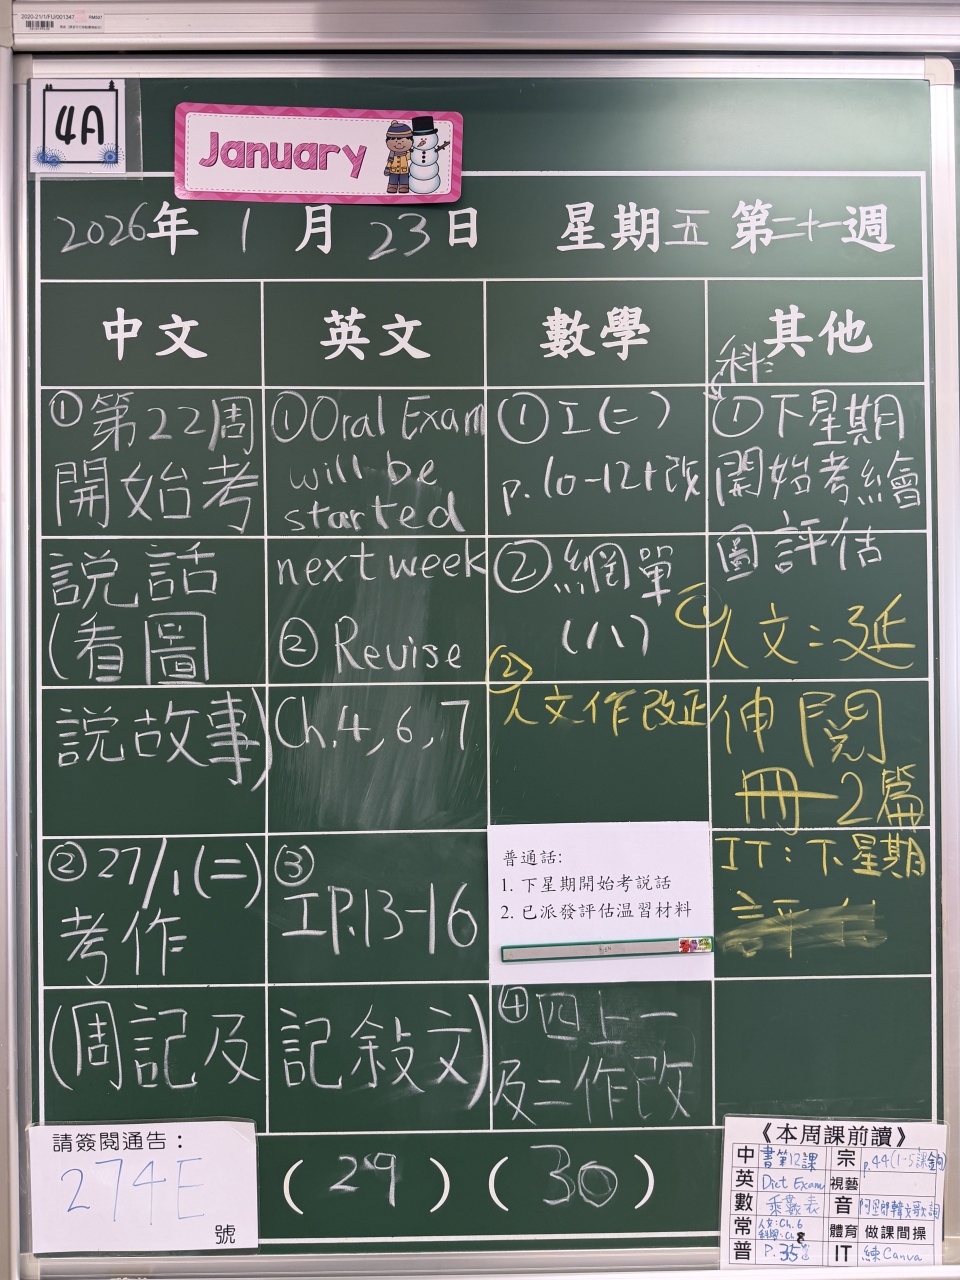 2020-21/1/FU/001347
RM507
4A
January
2026年 1月 23日 星期五 第二十一週
中文
英文
數學
其他
①第22周
開始考
説話
(看圖
説故事)
②27/1(二)
考作
(周記及
記敍文)
①Oral Exam
will be
started
next week
② Revise
Ch.4,6,7
③
工P.13-16
①工(二)
p.10-12+改
②網單
(八)
②
人文作改正
普通話:
1. 下星期開始考說話
2. 已派發評估温習材料
④四上一
及二作改
科:
①下星期
開始考繪
圖評估
①人文:延
伸閱
冊-2篇
IT:下星期
評估
請簽閱通告:
274E
號
(29)
(30)
《本周課前讀》
中 書第12課
宗 p.44(1-5課金句)
英 Dict Exam
視藝
數 乘數表
音 阿里郎韓文歌詞
常 人文:Ch.6
科學:Ch.8
體育 做課間操
普 P.35
IT 練Canva